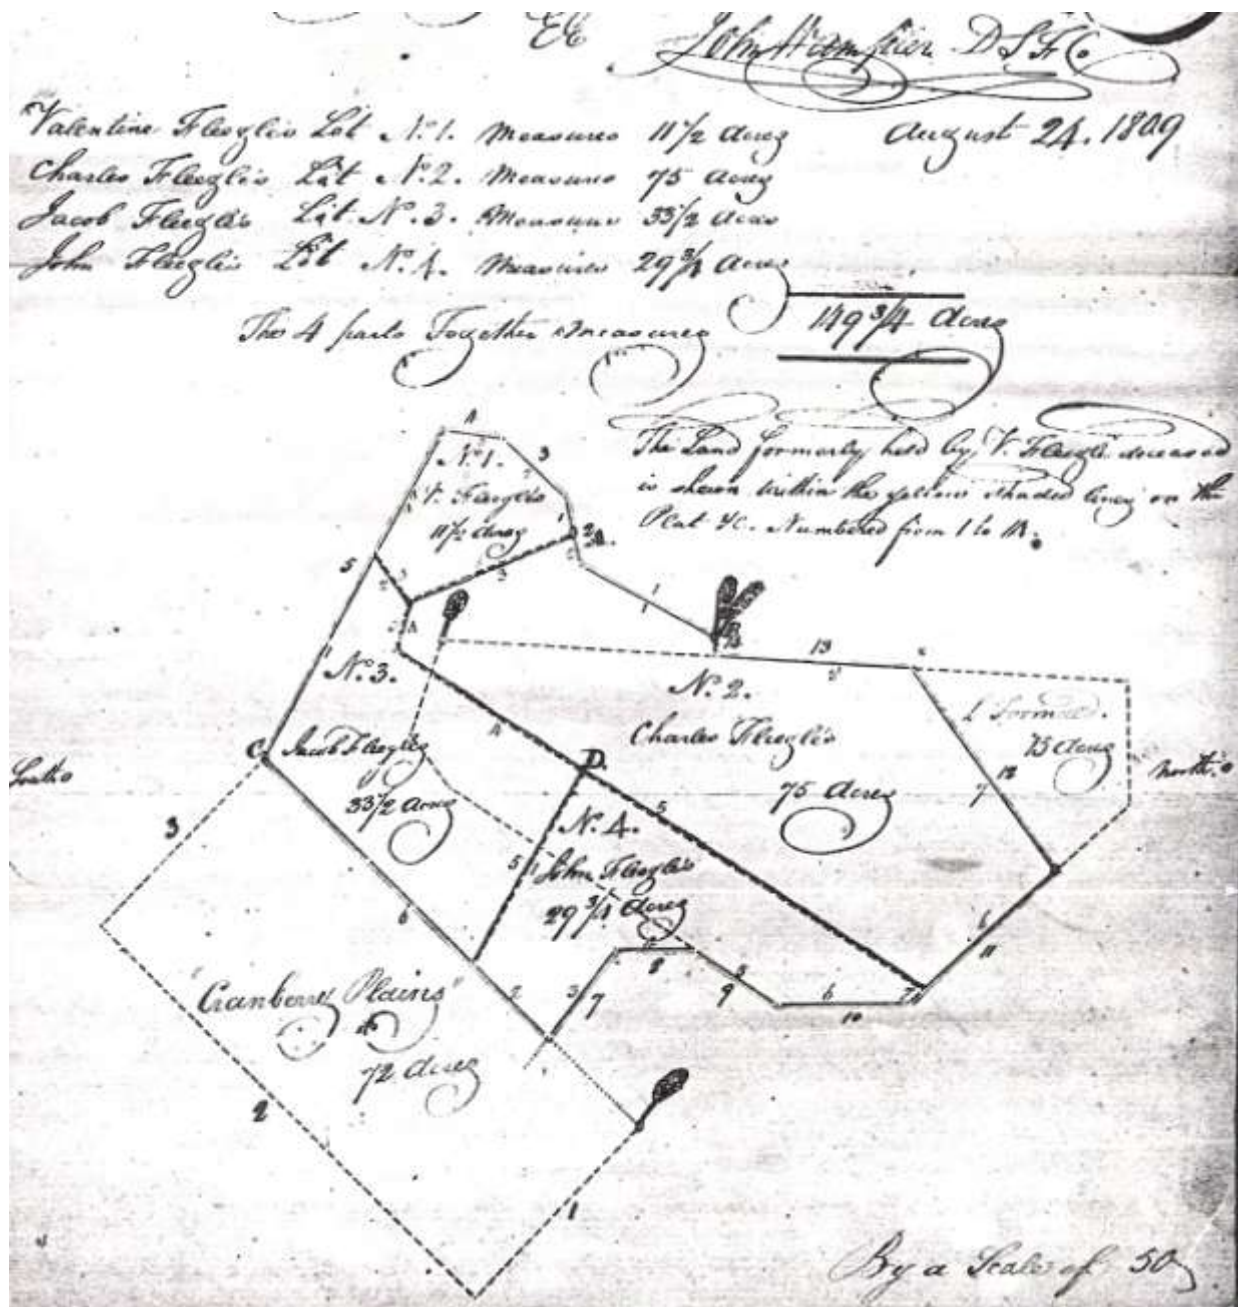 John Hampher D S F Co
August 24. 1809
Valentine Fleegle's Lot No. 1. Measures 11 1/2 Acres
Charles Fleegle's Lot No. 2. Measures 75 Acres
Jacob Fleegle's Lot No. 3. Measures 33 1/2 Acres
John Fleegle's Lot No. 4. Measures 29 3/4 Acres
The 4 parts Together Measures 149 3/4 Acres
The Land formerly held by V. Fleegle deceased
is shewn within the yellow shaded lines on the
Plat &c. Numbered from 1 to 13.
No. 1.
V. Fleegle's
11 1/2 Acres
No. 3.
Jacob Fleegle's
33 1/2 Acres
No. 2.
Charles Fleegle's
75 Acres
75 Acres
South
North
No. 4.
John Fleegle's
29 3/4 Acres
"Cranberry Plains"
72 Acres
C
D.
A
3
5
1
13
4
5
12
7
3
6
5
2
3
7
8
9
6
10
11
2
1
By a Scale of 50